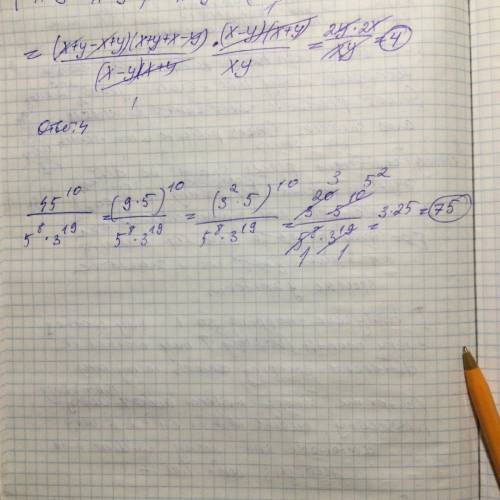 = (x+y-x+y)(x+y+x-y) / (x-y)(x+y) · (x-y)(x+y) / xy = 2y·2x / xy = 4
Ответ: 4
45^10 / 5^8·3^19 = (9·5)^10 / 5^8·3^19 = (3^2·5)^10 / 5^8·3^19 = 3^20·5^10 / 5^8·3^19 = 3·25 = 75